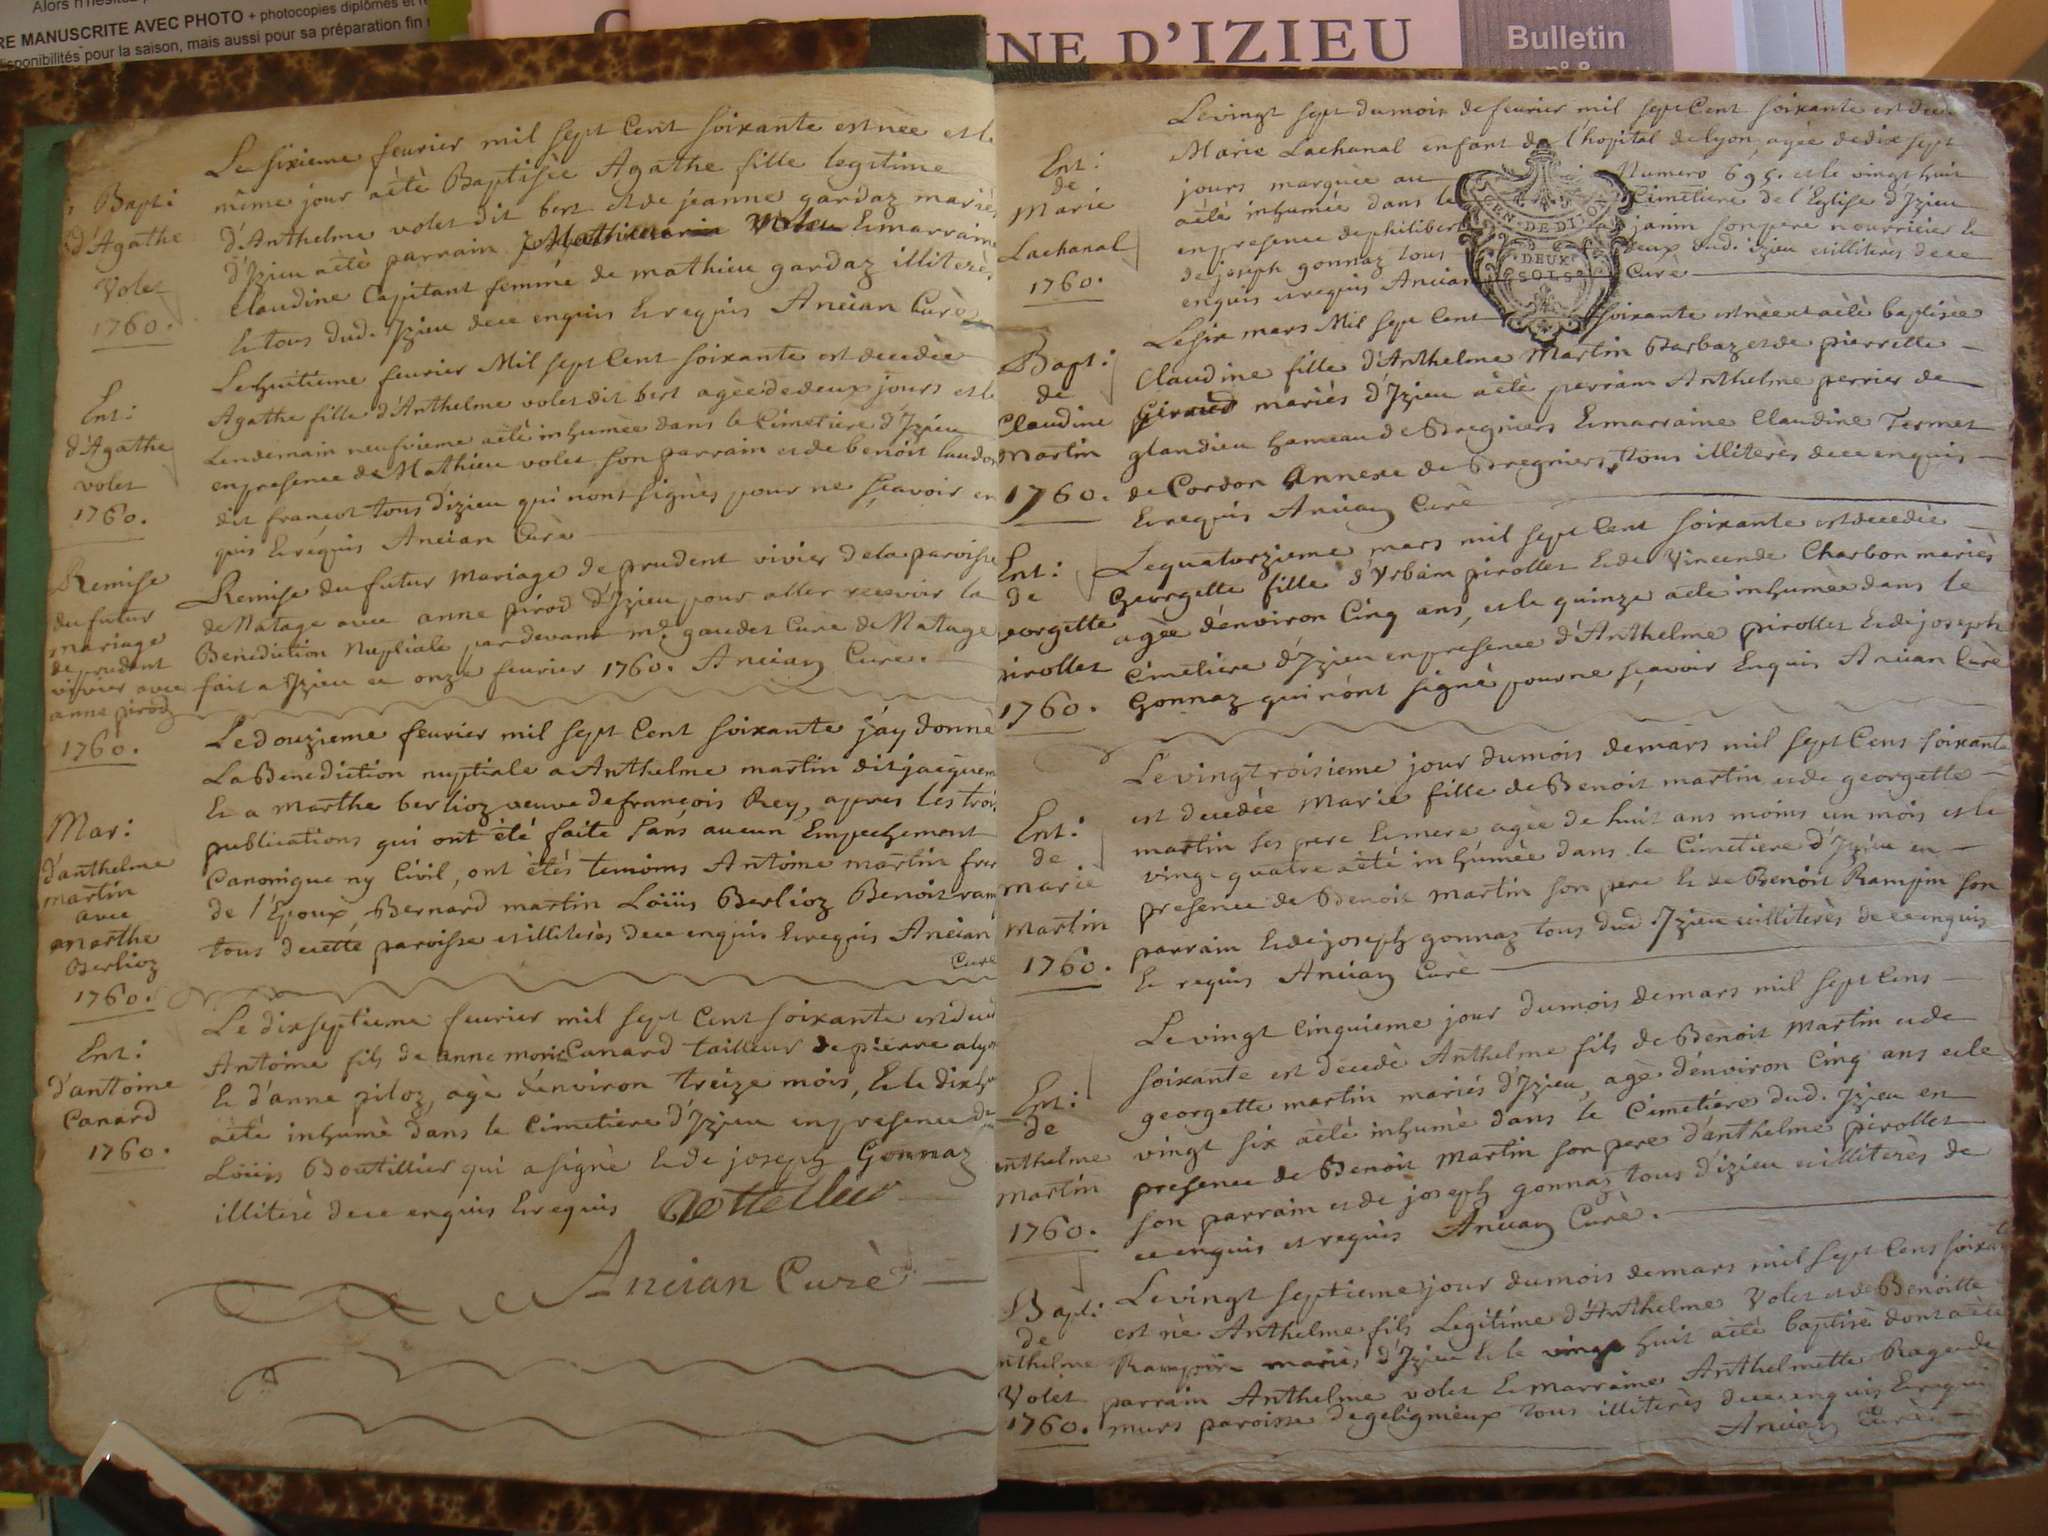 Alors n'hésitez
RE MANUSCRITE AVEC PHOTO + photocopies diplômes et
disponibilités pour la saison, mais aussi pour sa préparation fin
NE D'IZIEU
Bulletin
n° 8
Bapt:
d'Agathe
Volet
1760.
Le sixieme feurier mil sept Cent soixante est née et le
même jour aèté Baptisèe Agathe fille legitime
d'Anthelme volet dit bert et de jeanne gardaz mariès
d'Izieu aèté parrain Mathieu Volet & marraine
Claudine Capitant femme de mathieu gardaz illiterès
& tous dud. Izieu dece enquis & requis Ancian Curè
Ent:
d'Agathe
volet
1760.
Le huitieme feurier Mil sept Cent soixante est decedèe
Agathe fille d'Anthelme volet dit bert agèe de deux jours et le
Lendemain neufvieme aèté inhumèe dans le Cimetiere d'Izieu
en presence de Mathieu volet son parrain et de benoit
dit françot tous d'izieu qui nont signès pour ne sçavoir en
quis & requis Ancian Curè
Remise
du futur
mariage
de prudent
vivier avec
anne pirod
1760.
Remise du futur Mariage de prudent vivier de la paroisse
de Natage avec anne pirod d'Izieu pour aller recevoir la
Benediction Nuptiale par devant mr. gaudet Cure de Natage
fait a Izieu ce onze feurier 1760. Ancian Curè.
Mar:
d'anthelme
martin
avec
marthe
Berlioz
1760.
Le douzieme feurier mil sept Cent soixante j'ay donnè
La Benediction nuptiale a Anthelme martin dit jacquem
& a Marthe berlioz veuve de françois Rey, apres les trois
publications qui ont été faite sans aucun Empechement
Canonique ny Civil, ont ètés temoins Antoine martin frer
de l'Epoux Bernard martin Loüis Berlioz Benoit ram
tous de cette paroisse et illiterès dece enquis & requis Ancian
Curè
Ent:
d'antoine
Canard
1760.
Le dixseptieme feurier mil sept Cent soixante est deced
Antoine fils de Canard tailleur de pierre a lyon
& d'anne piloz, agè d'environ treize mois, & le dixhui
aèté inhumè dans le Cimetiere d'Izieu en presence de
Loüis Boutillier qui a signè & de joseph Gonnaz
illiterè dece enquis & requis
Ancian Curè
Ent:
de
Marie
Lachanal
1760.
Le vingt sept du mois de feurier mil sept Cent soixante est decedé
Marie Lachanal enfant de l'hopital de lyon, agèe de dix sept
jours marquèe au Numero 695. et le vingt huit
aèté inhumée dans le Cimetiere de l'Eglise d'Izieu
en presence de philibert janin son pere nourricier &
de joseph gonnaz tous deux dud. izieu et illiterès dece
enquis et requis Ancian Curè
GEN. DE DIJON
DEUX
SOLS
Bapt:
de
Claudine
Martin
1760.
Le six mars Mil sept Cent soixante est née et aèté baptisèe
Claudine fille d'Anthelme Martin Barbaz et de pierrette
Giraud mariès d'Izieu aèté parrain Anthelme perrier de
glandieu hameau de Bregniers & marraine Claudine Termet
de Cordon Annexe de Bregniers, tous illiterès dece enquis
& requis Ancian Curè
Ent:
de
eorgette
irollet
1760.
Le quatorzieme mars mil sept Cent soixante est decedèe
Georgette fille d'Urbain pirollet & de Vincende Charbon mariès
agèe d'environ Cinq ans, et le quinze aèté inhumèe dans le
Cimetiere d'Izieu en presence d'Anthelme pirollet & de joseph
Gonnaz qui n'ont signè pour ne sçavoir Enquis Ancian Curè
Ent:
de
marie
Martin
1760.
Le vingtroisieme jour du mois de mars mil sept Cens soixante
est decedée Marie fille de Benoit martin et de georgette
martin ses pere & mere agèe de huit ans moins un mois et le
vingt quatre aèté inhumèe dans le Cimetiere d'Izieu en
presence de Benoit Martin son pere & de Benoit Rampin son
parrain & de joseph gonnaz tous dud. Izieu et illiterès de ce enquis
& requis Ancian Curè
Ent:
de
nthelme
martin
1760.
Le vingt Cinquieme jour du mois de mars mil sept Cens
soixante est decedè Anthelme fils de Benoit Martin et de
georgette martin mariès d'Izieu, agè d'environ Cinq ans et le
vingt six aèté inhumè dans le Cimetiere dud. Izieu en
presence de Benoit Martin son pere d'anthelme pirollet
son parrain et de joseph gonnaz tous d'izieu et illiterès de
ce enquis et requis Ancian Curè.
Bapt:
de
nthelme
Volet
1760.
Le vingt septieme jour du mois de mars mil sept Cens soixante
est nè Anthelme fils Legitime d'Anthelme Volet et de Benoitte
Rampin mariès d'Izieu & le vingt huit aèté baptisè dont a èté
parrain Anthelme volet & marraine Anthelmette Roge de
murs paroisse de gelignieux tous illiterès dece enquis & requis
Ancian Curè